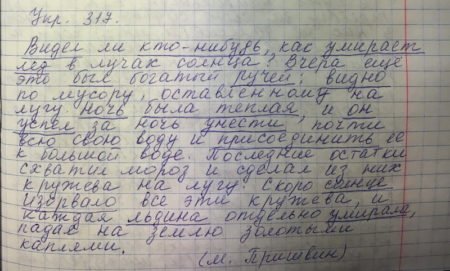 Упр. 317.
Видел ли кто-нибудь, как умирает
лед в лучах солнца? Вчера еще
это был богатый ручей: видно
по мусору, оставленному на
лугу. Ночь была теплая, и он
успел за ночь унести почти
всю свою воду и присоединить ее
к большой воде. Последние остатки
схватил мороз и сделал из них
кружева на лугу. Скоро солнце
изорвало все эти кружева, и
каждая льдина отдельно умирала,
падая на землю золотыми
каплями.
(М. Пришвин)